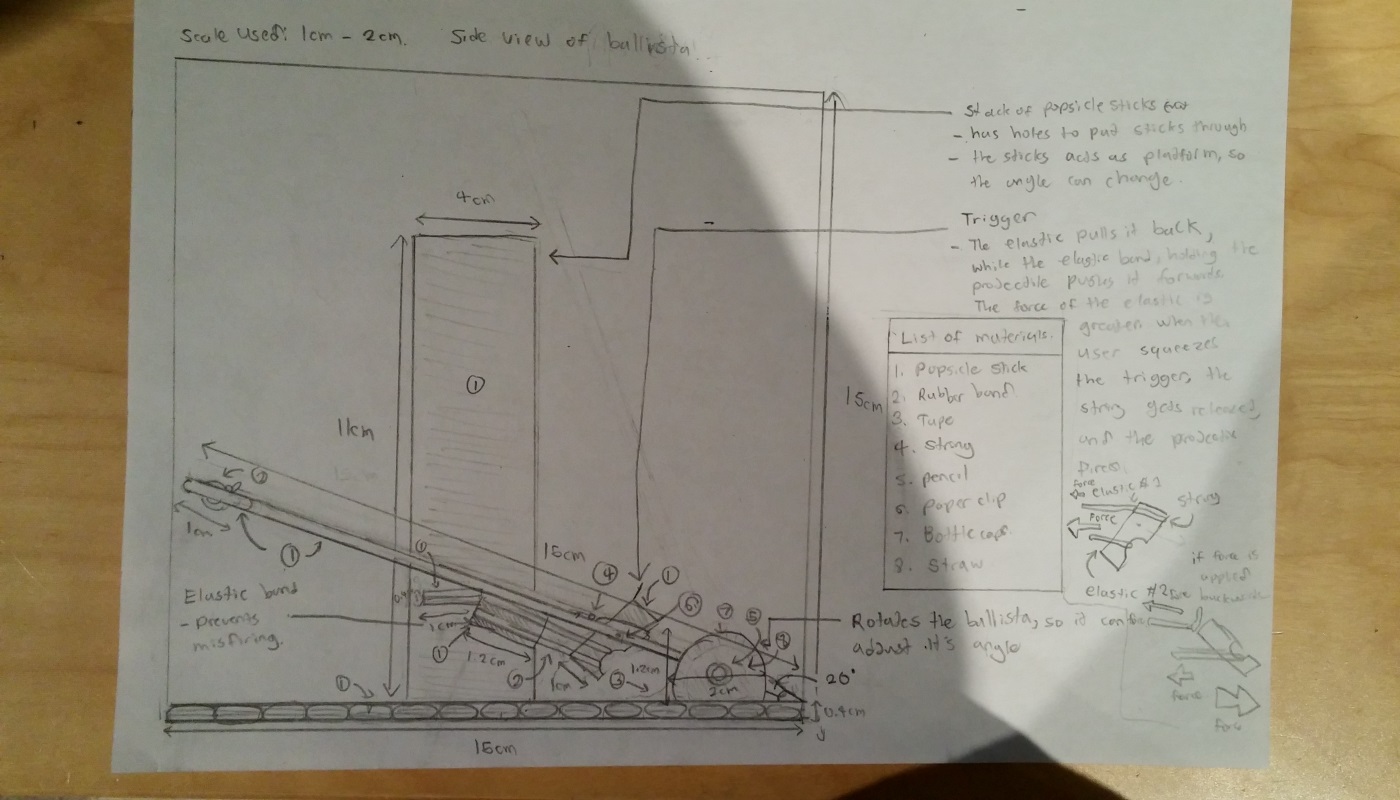 Scale used: 1cm - 2cm. Side view of ballista
Stack of popsicle sticks
- has holes to put sticks through
- the sticks acts as platform, so
the angle can change.
4cm
Trigger
- The elastic pulls it back,
while the elastic band, holding the
projectile pushes it forwards.
The force of the elastic is
greater. when the
user squeezes
the trigger, the
string gets released,
and the projectile
List of materials.
1. Popsicle stick
2. Rubber band
3. Tape
4. String
5. pencil
6. Paper clip
7. Bottle caps
8. Straw
15cm
①
11cm
②
1cm
①
①
15cm
④
①
⑥
⑦
⑤
⑧
Force
elastic #1
string
Force
elastic #2
if force is
applied
backwards
Force
Force
Elastic band
- prevents
misfiring.
1cm
①
1.2cm
②
1cm
③
1.2cm
2cm
Rotates the ballista, so it can
adjust it's angle
20°
①
0.4cm
15cm